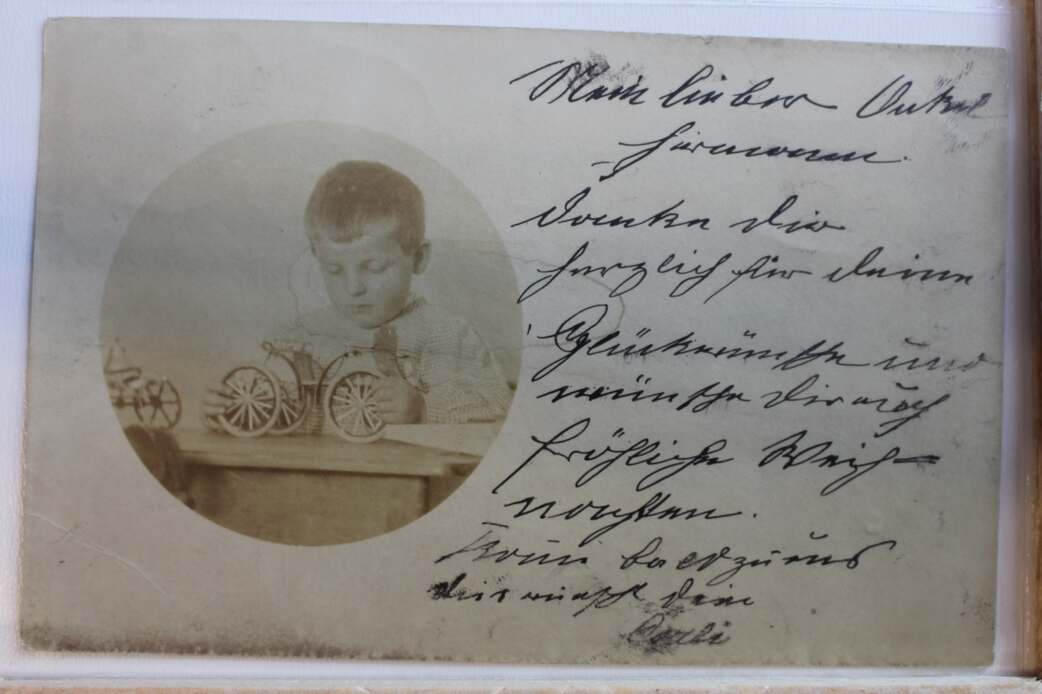 Mein lieber Onkel
Hermann.
Danke Dir
herzlich für deine
Glückwünsche und
wünsche Dir auch
fröhliche Weih-
nachten.
Komm bald zu uns
dies wünscht dein